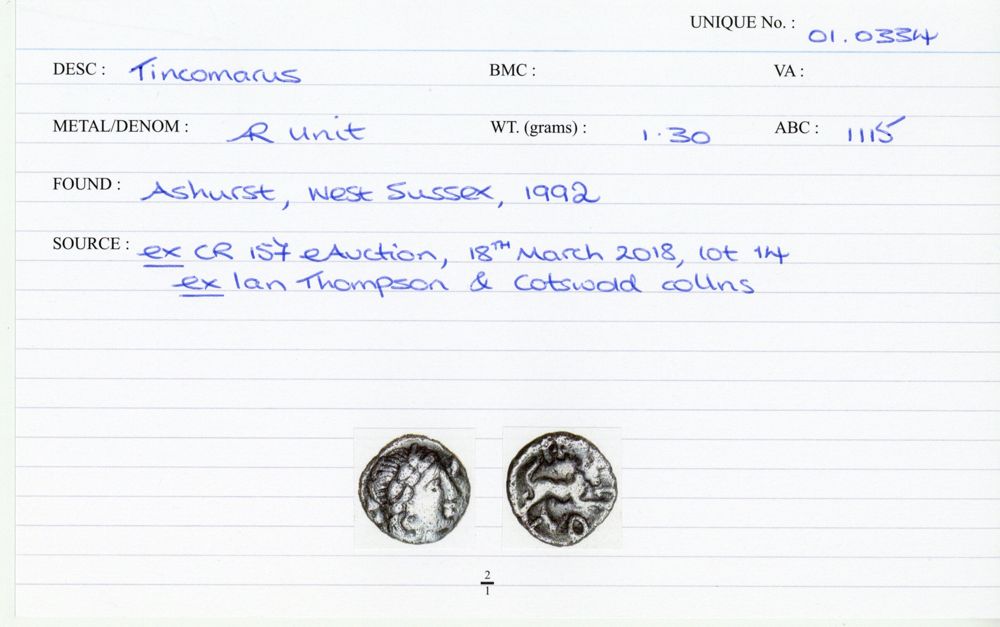 UNIQUE No. : 01.0334
DESC : Tincomarus BMC : VA :
METAL/DENOM : ÆR Unit WT. (grams) : 1.30 ABC : 1115
FOUND : Ashurst, West Sussex, 1992
SOURCE : ex CR 157 eAuction, 18TH March 2018, lot 14
ex Ian Thompson & Cotswold collns
2
1